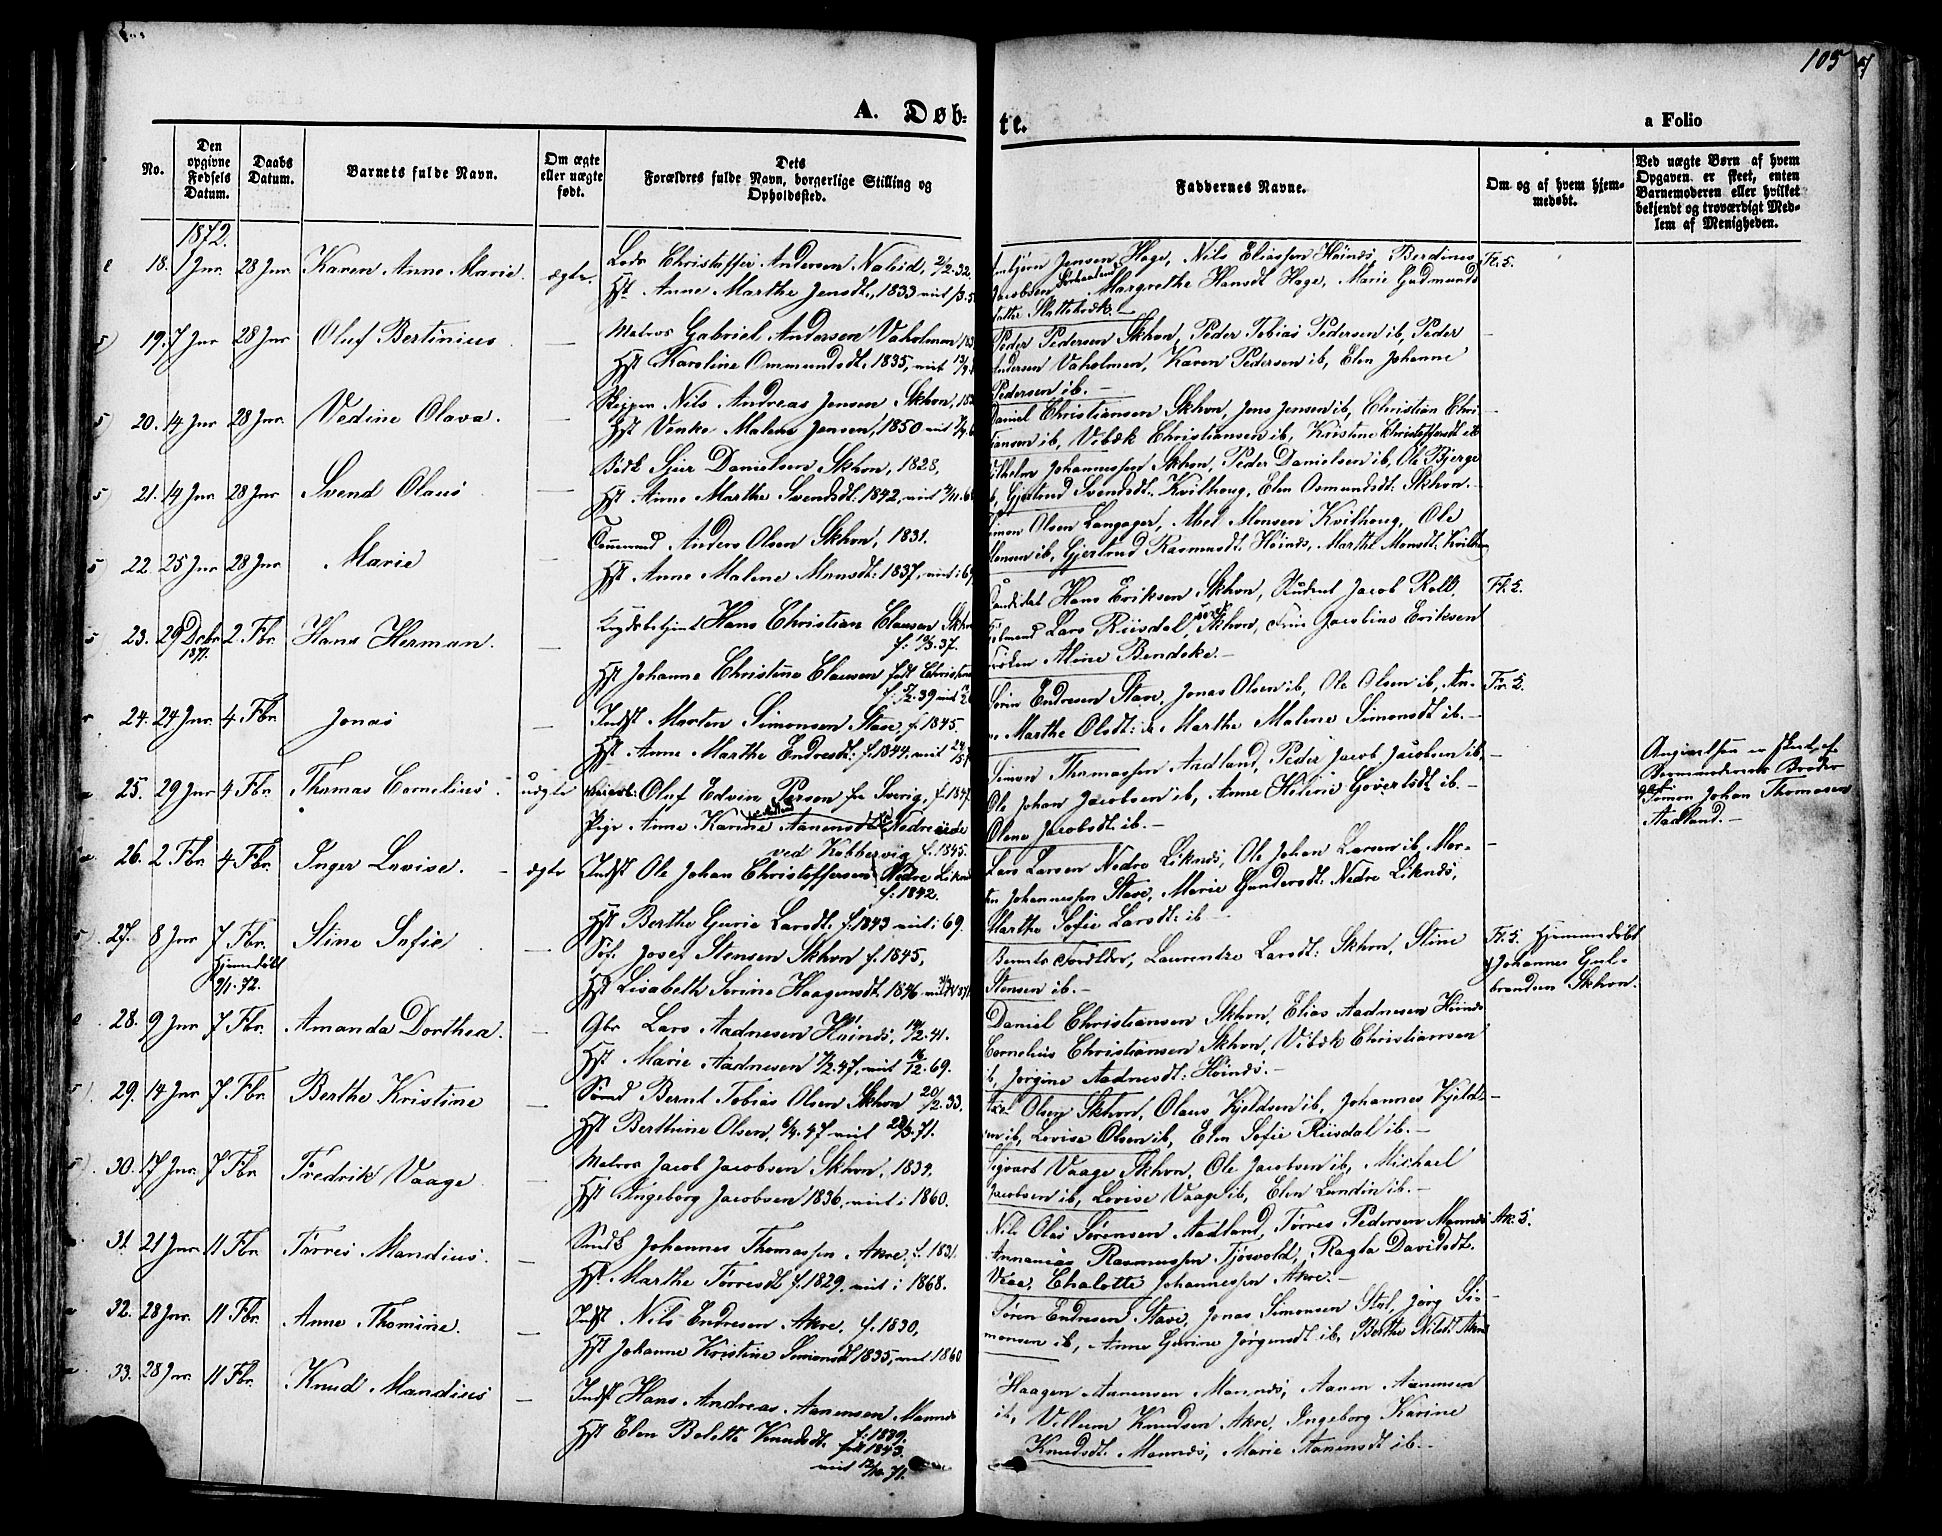 105
A. Døb-
te.
a Folio
No.
Den opgivne Fødsels Datum.
Daabs Datum.
Barnets fulde Navn.
Om ægte eller uægte født.
Dets Forældres fulde Navn, borgerlige Stilling og Opholdssted.
Faddernes Navne.
Om og af hvem hjemmedøbt.
Ved uægte Børn af hvem Opgaven er skeet, enten Barnemoderen eller hvilket bekjendt og troværdigt Medlem af Menigheden.
1872.
18. 1 Jnr. 28 Jnr. Karen Anne Marie. ægte.
Christoffer Andersen
Hst Anne Marthe Jensdt., 1833
Jensen Hage, Nils Eliassen Høinæs, Berdines
Jacobsen Margrethe Hansdt Hage, Marie Gudmunds
19. 7 Jnr 28 Jnr Oluf Bertinius —
Matros Gabriel Andersen Vaholmen
Hst Karoline Ommundsdt. 1835,
Peder Pedersen Skhvn, Peder Tobias Pedersen ib, Peder
Andersen Vaholmen, Karen Pedersen ib, Elen Johanne
Pedersen ib. —
20. 14 Jnr 28 Jnr Vedine Olava. —
Nils Andreas Jensen Skhvn,
Hst Venke Malene Jensen, 1850
Daniel Christiansen Skhvn, Jens Jensen ib, Christian Chri-
stiansen ib, Vibæk Christiansen ib, Kristine Christoffersdt ib
21. 14 Jnr 28 Jnr Svend Olaus —
Danielsen Skhvn, 1828,
Hst Anne Marthe Svendsdt: 1842,
Vilhelm Johannessen Skhvn, Peder Danielsen ib, Ole Bjerge
ib, Gjertrud Svendsdt: Kvilhaug, Elen Osmundsdt: Skhvn. —
22. 25 Jnr 28 Jnr Marie —
Anders Olsen Skhvn, 1831.
Hst Anne Malene Monsdt: 1837,
Simon Olsen Langager, Abel Monsen Kvilhaug, Ole
Monsen ib, Gjertrud Rasmusdt: Høinæs, Marthe Monsdt:
23. 29 Dcbr 1871. 2 Fbr. Hans Herman. —
Hans Christian Clausen
f: 10/3. 37.
Hst Johanne Christine Clausen født
Candidat Hans Eriksen Skhvn, Student Jacob Roll,
Lars Riisdal, Skhvn, Frue Jacobine Eriksen
Frøken Aline Bendeke. —
24. 24 Jnr. 4 Fbr. Jonas —
Indst Morten Simonsen Stave, f. 1845.
Hst Anne Marthe Endresdt: f. 1844,
Søren Endresen Stave, Jonas Olsen ib, Ole Olsen ib, An-
ne Marthe Olsdt: ib, Marthe Malene Simonsdt ib. —
25. 29 Jnr 4 Fbr. Thomas Cornelius. uægte
Oluf Edvin Person fra Sverig,
Pige Anne Karine Aanensdt
f. 1845.
Simon Thomassen Aadland, Peder Jacob Jacobsen ib,
Ole Johan Jacobsen ib, Anne Helene Govertsdt ib. —
Olene Jacobsdt: ib. —
Angivelsen er skeet af
Barnemoderens Broder
Simon Johan Thomasen
Aadland. —
26. 2 Fbr. 4 Fbr. Inger Lovise. ægte
Indst Ole Johan Christoffersen Nedre
f: 1842.
Hst Berthe Gurie Larsdt. f. 1843 viet i 69.
Lars Larsen Nedre Liknæs, Ole Johan Larsen ib, Mor-
ten Johannessen Stave, Marie Gundersdt: Nedre Liknæs,
Marthe Sofie Larsdt: ib —
27. 8 Jnr 7 Fbr. Hjemmedøbt 9/1. 72. Stine Sofie —
Josef Stensen Skhvn f. 1845,
Hst Lisabeth Serine Haagensdt. 1846
Barnets Forældre, Laurentze Larsdt: Skhvn, Stine
Stensen ib. —
Hjemmedøbt
Johannes Gul-
brandsen Skhvn.
28. 9 Jnr 7 Fbr. Amanda Dorthea. —
Gbr Lars Aadnesen Høinæs,
Hst Marie Aadnesen
Daniel Christiansen Skhvn, Elias Aadnesen Høinæs
Cornelius Christiansen Skhvn, Vibæk Christiansen
ib, Jørgine Aadnesdt: Høinæs. —
29. 14 Jnr 7 Fbr. Berthe Kristine —
Bernt Tobias Olsen Skhvn 20/2. 33.
Hst Berthine Olsen,
Olsen Skhvn, Olaus Kjeldsen ib, Johannes Kjeld-
sen ib, Lovise Olsen ib, Elen Sofie Riisdal ib. —
30. 17 Jnr. 7 Fbr. Fredrik Vaage. —
Matros Jacob Jacobsen Skhvn, 1834.
Hst Ingeborg Jacobsen 1836, viet i 1860.
Sigvart Vaage Skhvn, Ole Jacobsen ib, Michael
Jacobsen ib, Lovise Vaage ib, Elen Lundin ib. —
31. 21 Jnr. 11 Fbr. Tørres Mandius. —
Johannes Thomassen Akre, f. 1831.
Hst Marthe Tørresdt f. 1829, viet i 1868.
Nils Olai Sørensen Aadland, Tørres Pedersen Mannæs
Annanias Rasmussen Tjøsvold, Ragla Davidsdt.
Chalotte Johannessen Akre. —
Ak. 5.
32. 28 Jnr. 11 Fbr. Anne Thomine. —
Indst Nils Endresen Akre, f. 1830,
Hst Johanne Kristine Simonsdt 1835, viet 1860
Søren Endresen Stave, Jonas Simonsen Stol, Jørg Si-
monsen ib, Anne Gurine Jørgensdt ib, Berthe Nilsdt Akre
33. 28 Jnr. 11 Fbr. Knud Mandius —
Indst Hans Andreas Aanensen Mannæs
f: 1839.
Hst Elen Bolette Knudsdt. født 1843.
viet 12/10. 71.
Haagen Aanensen Mannæs, Aanen Aanensen
ib, Villum Knudsen Akre, Ingeborg Karine
Knudsdt. Mannæs, Marie Aanensdt ib. —